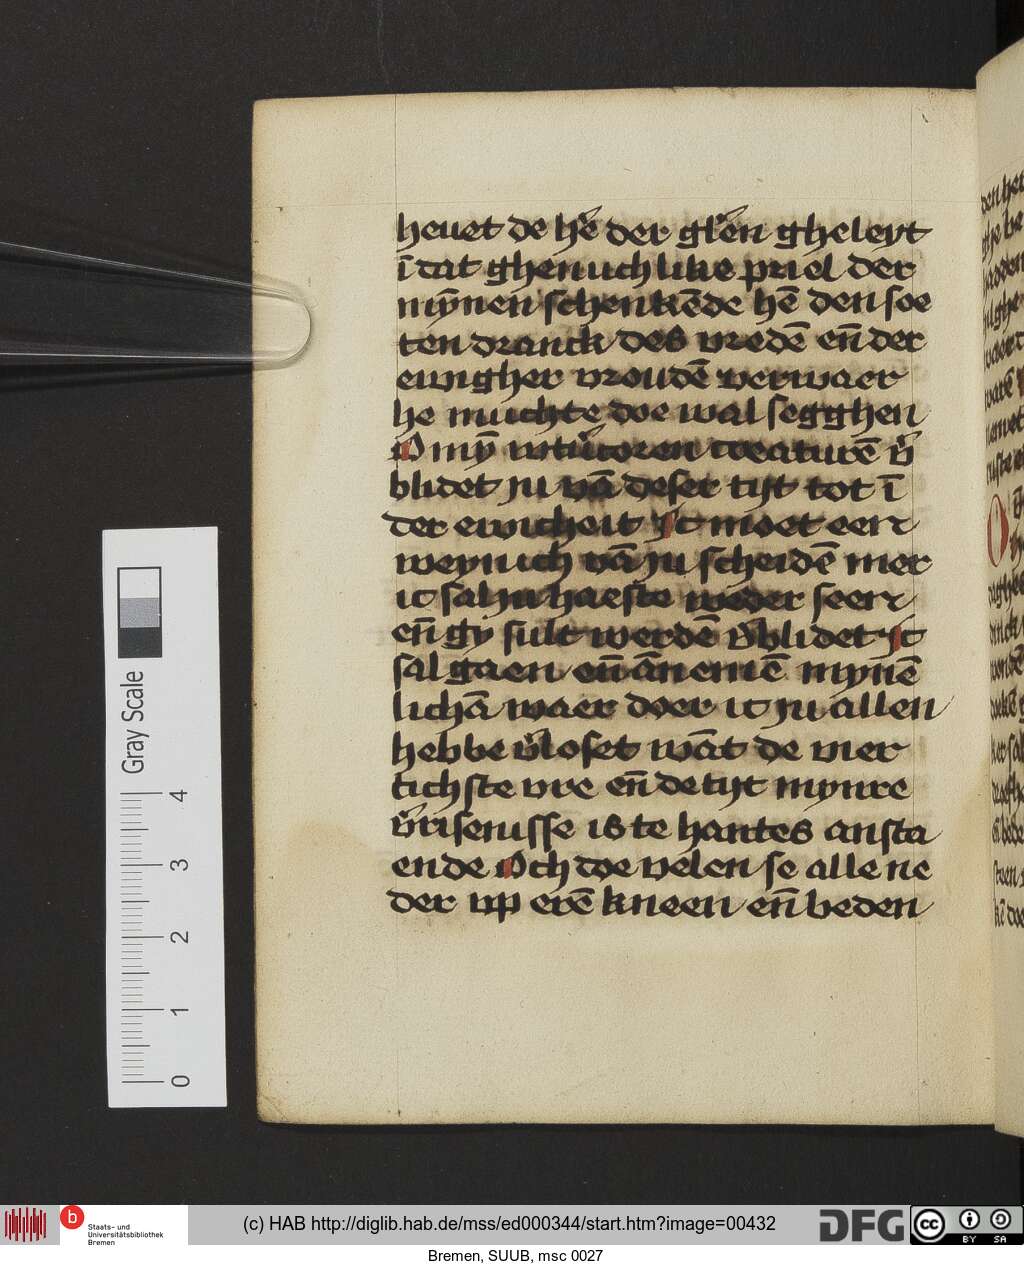 heuet de h̄e der gl̄en gheleyt
ī dat ghenuchlike priel der
mȳnen schenkēde hē den soe
ten dranck des vredē en̄ der
ewigher vroudē verwaer
he muchte doe wal segghen
O mȳ creaturē v̄
blidet ju vā deser tijt tot ī
der ewicheit Jc moet eerr
weynich vā ju scheidē mer
ic sal ju haeste weder seerr
en̄ gy sult werdē v̄blidet Jc
sal gaen en̄ ānemē mynē
lichā waer doer ic ju allen
hebbe v̄loset wāt de vier
tichste vre en̄ de tijt mynre
v̄risenisse is te hantes ansta
ende Och doe velen se alle ne
der vp erē kneen en̄ beden
Gray Scale
0 1 2 3 4
b
Staats- und
Universitätsbibliothek
Bremen
(c) HAB http://diglib.hab.de/mss/ed000344/start.htm?image=00432
DFG
cc BY SA
Bremen, SUUB, msc 0027